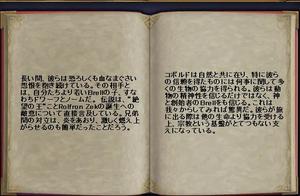 長い間、彼らは恐ろしくも血なまぐさい
怨恨を抱き続けている。その相手と
は、自分たちより若いBrellの子、すな
わちドワーフとノームだ。 伝説は、"絶
望の王"ことRolfron Zekの誕生への
敵意について直接言及している。兄弟
間の対立は、炎をあおり、激しく燃え上
がらせるのも簡単だったことだろう。
コボルドは自然と共に在り、特に彼ら
の信頼を得たものには何事に関して多
くの生物の協力を得られる。彼らは動
物の精神性を信じるだけではなく、神
と創始者のBrellをも信じる。これは
我々からしてみれば驚異だ。彼らが旅
に出る際は他の生命より協力を受ける
上、宗教という基盤がとてつもない支
えになっている。